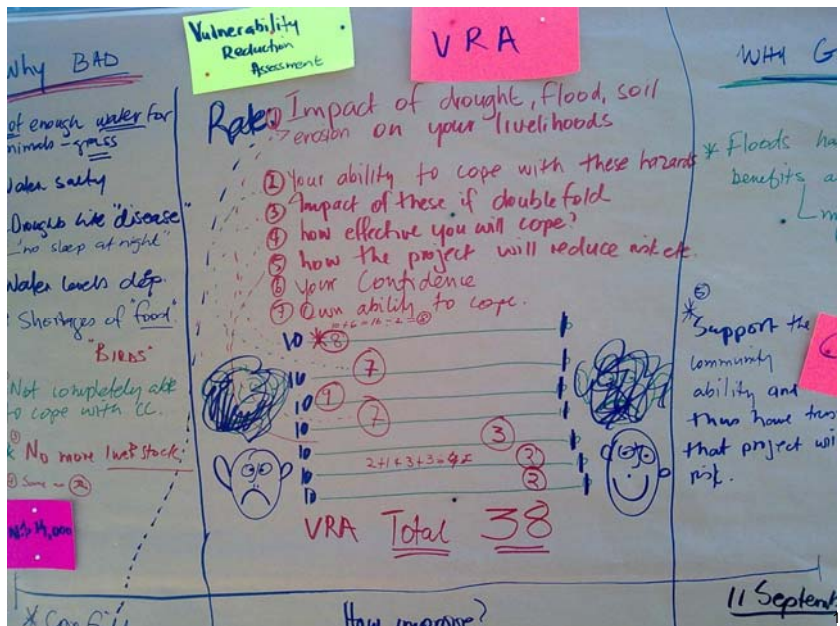 Vulnerability
Reduction
Assessment
VRA
Why BAD
not enough water for
animals - grass
Water salty
Droughts like "disease"
"no sleep at night"
Water levels
Shortages of "food"
"BIRDS"
Not completely able
to cope with CC.
No more livestock
Same
N$ 14,000
Rate:
① Impact of drought, flood, soil
erosion on your livelihoods
② Your ability to cope with these hazards
③ Impact of these if doublefold
④ how effective you will cope?
⑤ how the project will reduce risk etc.
⑥ your Confidence
⑦ Own ability to cope.
10 8
10 7
10
10 7
10 3
10 2
10 2
VRA Total 38
WHY G
* Floods ha
benefits a
⑤
* Support the
community
ability and
thus have trus
that project wil
risk.
How improve?
11 Septemb